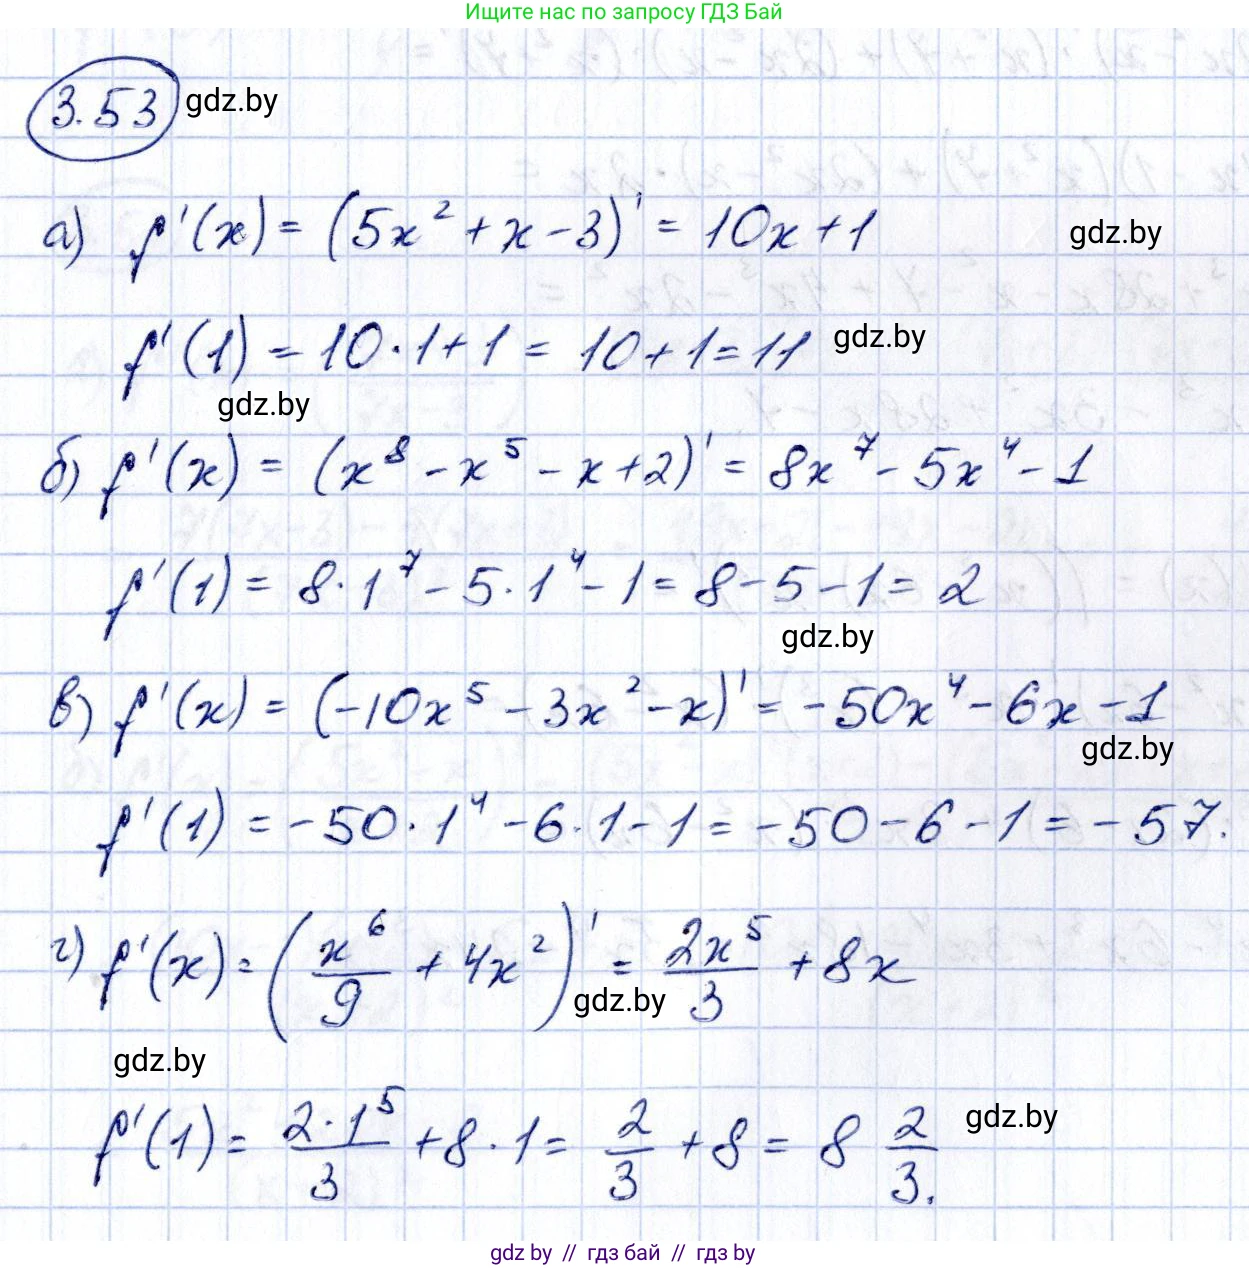 Ищите нас по запросу ГДЗ Бай
3.53 gdz.by
а) f'(x) = (5x² + x - 3)' = 10x + 1 gdz.by
f'(1) = 10 · 1 + 1 = 10 + 1 = 11 gdz.by
gdz.by
б) f'(x) = (x⁸ - x⁵ - x + 2)' = 8x⁷ - 5x⁴ - 1
f'(1) = 8 · 1⁷ - 5 · 1⁴ - 1 = 8 - 5 - 1 = 2
gdz.by
в) f'(x) = (-10x⁵ - 3x² - x)' = -50x⁴ - 6x - 1
gdz.by
f'(1) = -50 · 1⁴ - 6 · 1 - 1 = -50 - 6 - 1 = -57.
г) f'(x) = (x⁶/9 + 4x²)' = 2x⁵/3 + 8x
gdz.by
gdz.by
f'(1) = 2 · 1⁵/3 + 8 · 1 = 2/3 + 8 = 8 2/3. gdz.by
gdz.by // гдз бай // гдз by